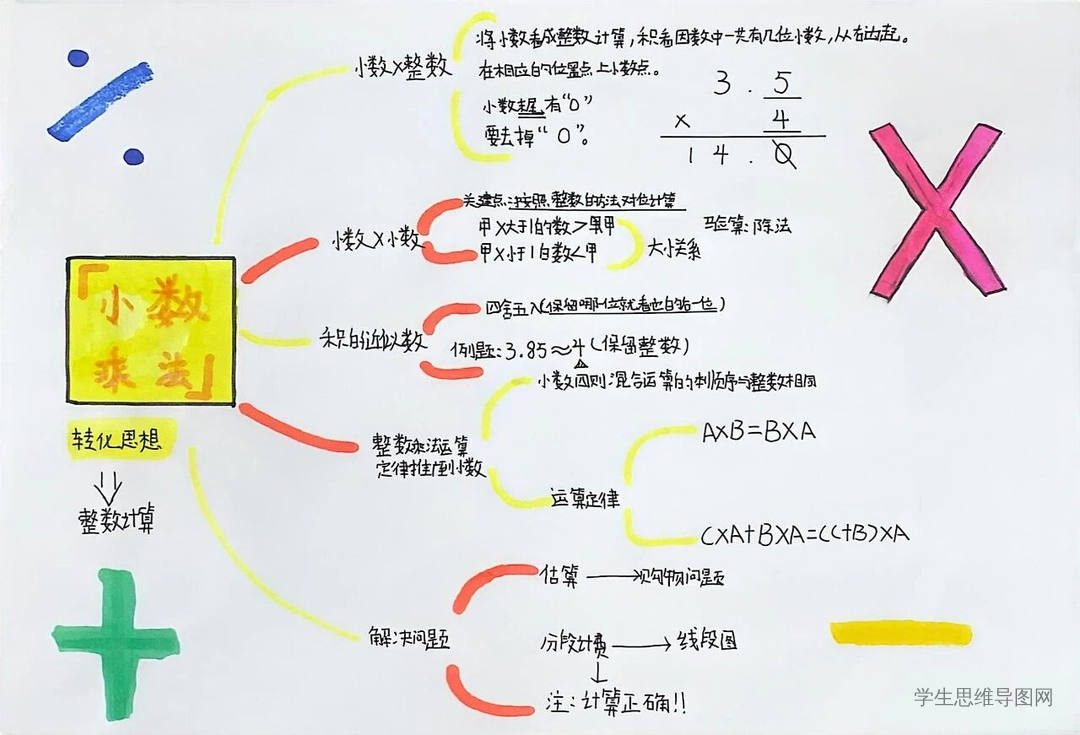 小数X整数
将小数看成整数计算，积看因数中一共有几位小数，从右边起。
在相应的位置点上小数点。
小数末尾有“0”
要去掉“0”。
3.5
x 4
14.0
小数X小数
关键点:按照整数的方法对位计算
甲X大于1的数>甲
甲X小于1的数<甲
大小关系
验算:除法
「小数
乘法」
积的近似数
四舍五入(保留哪一位就看它的后一位)
例题:3.85≈4(保留整数)
整数乘法运算
定律推广到小数
小数四则混合运算的顺序与整数相同
运算定律
AXB=BXA
CXA+BXA=(C+B)XA
转化思想
整数计算
解决问题
估算
购物问题
分段计费
线段图
注:计算正确!!
学生思维导图网